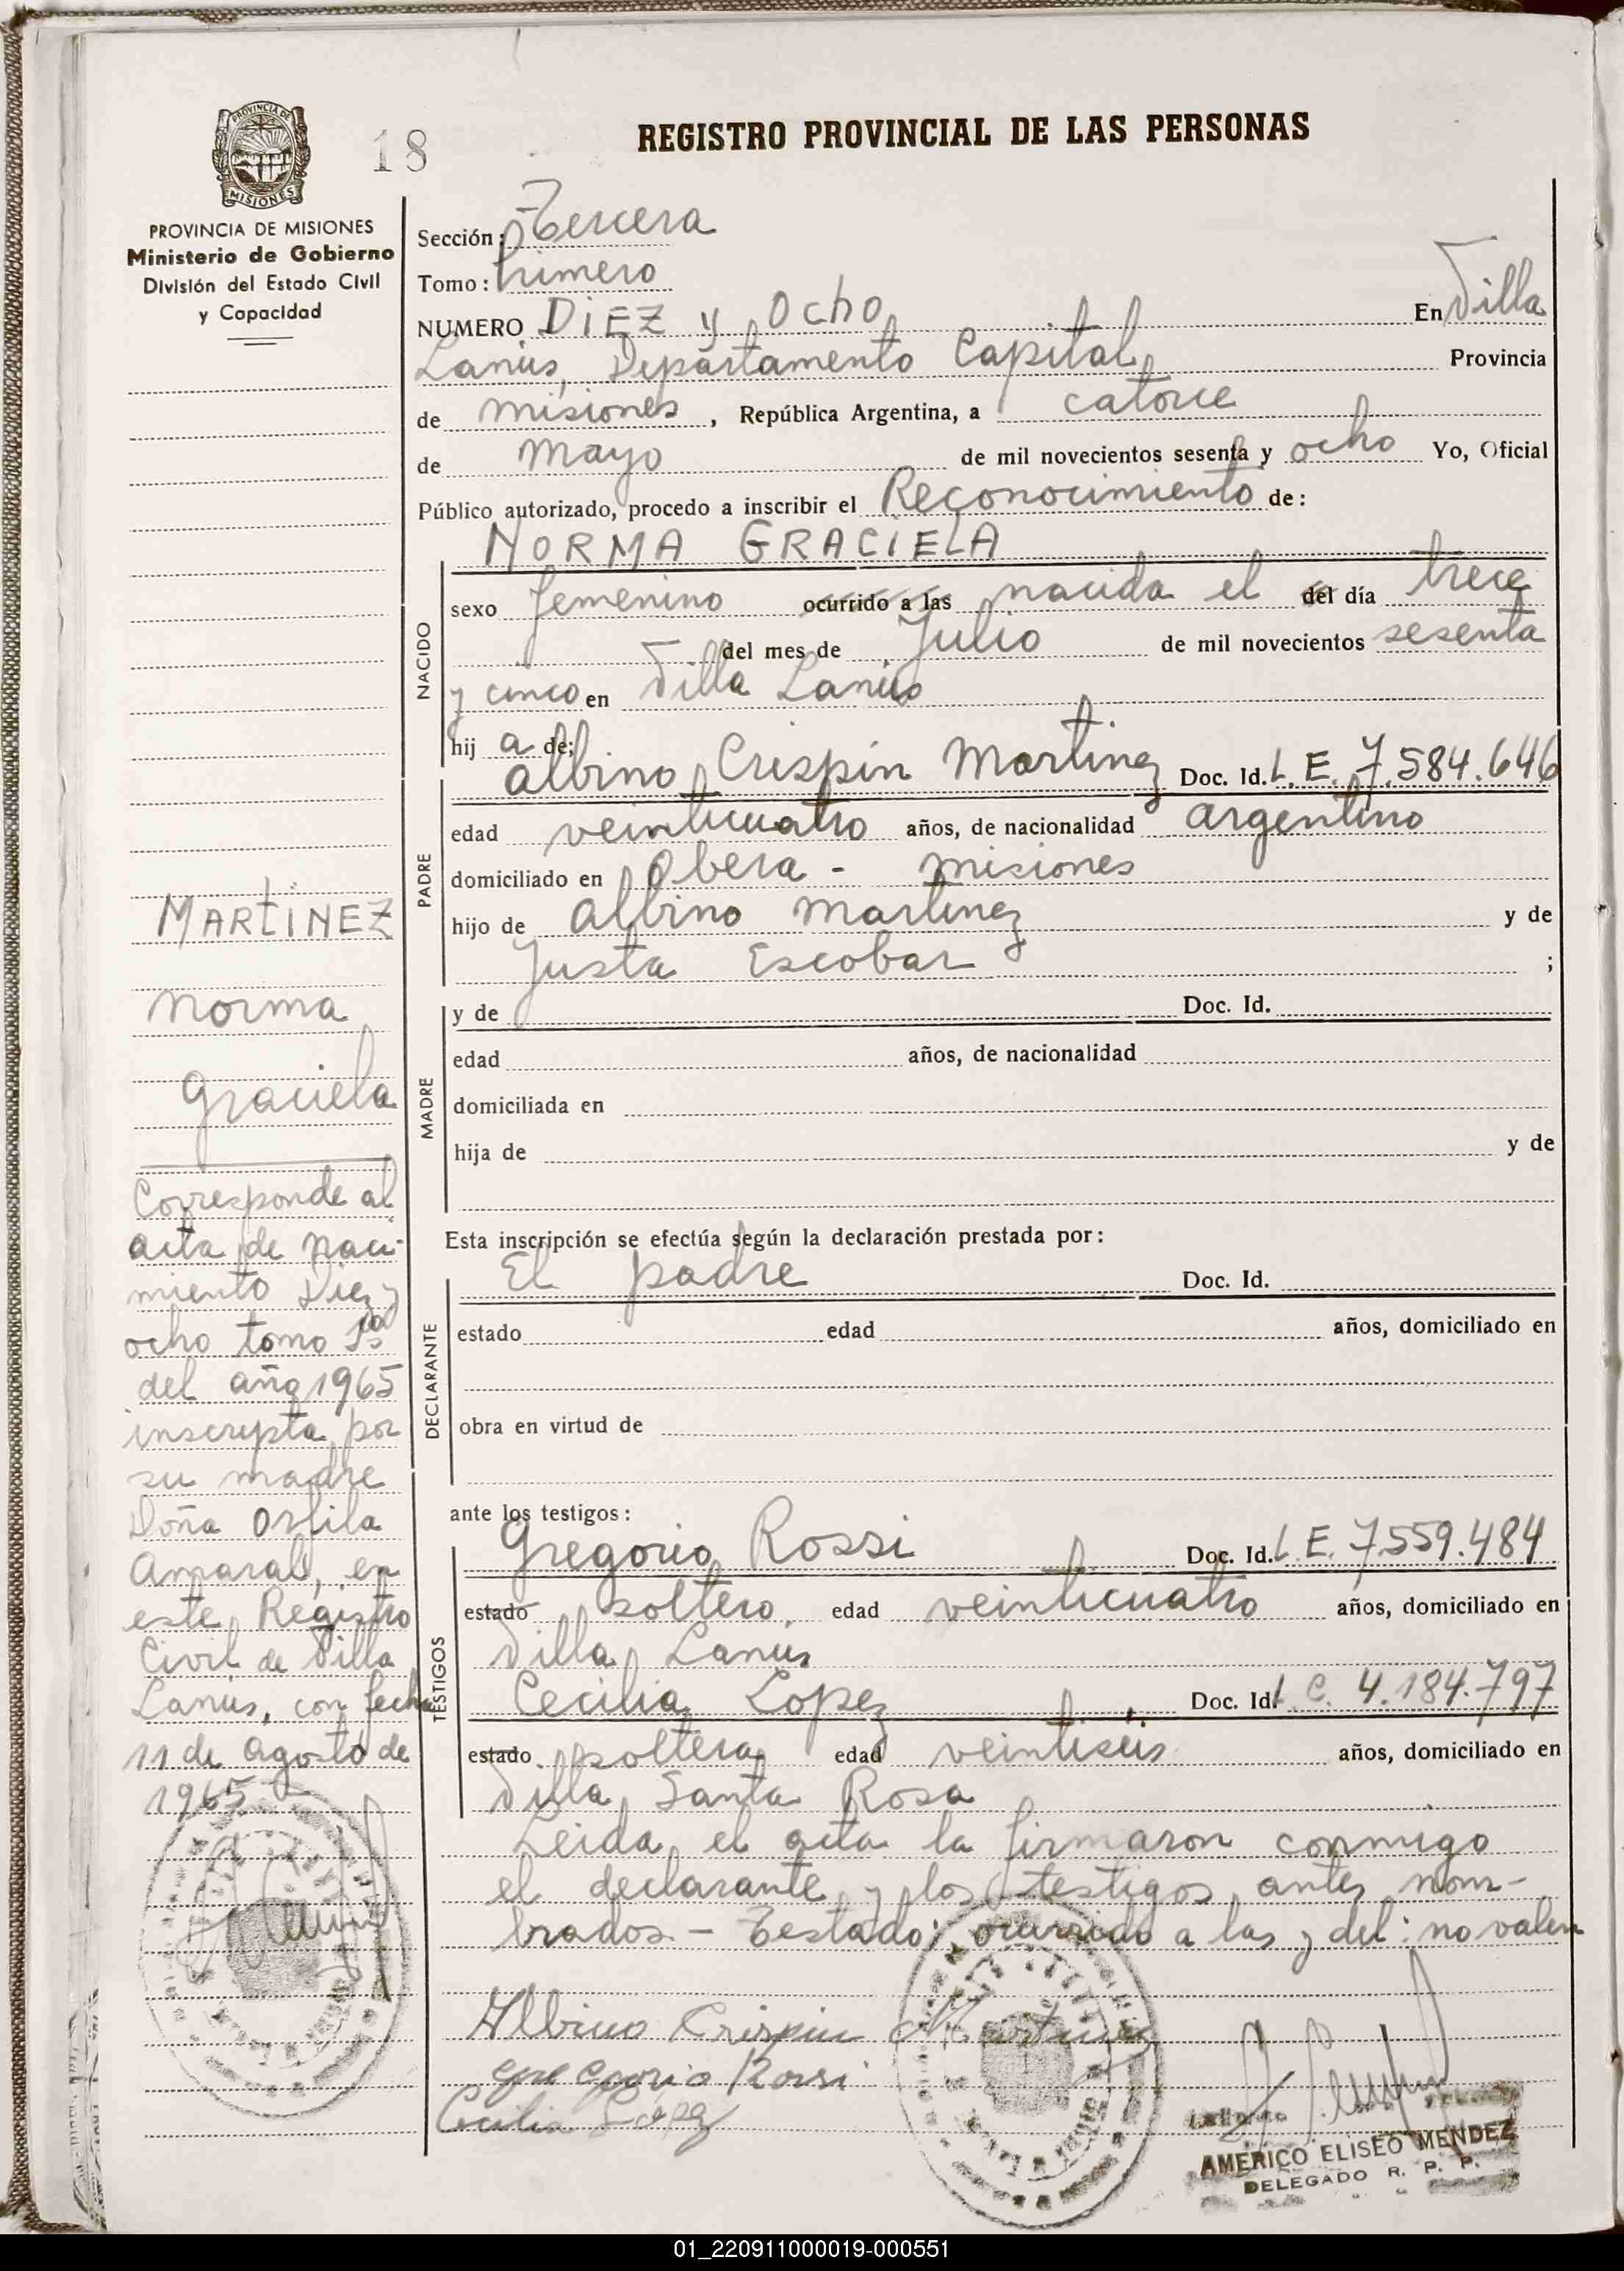 18
REGISTRO PROVINCIAL DE LAS PERSONAS
PROVINCIA DE MISIONES
Ministerio de Gobierno
División del Estado Civil
y Capacidad
Sección: Tercera
Tomo: Primero
NUMERO DIEZ y Ocho En Villa
Lanús, Departamento Capital, Provincia
de misiones, República Argentina, a catorce
de Mayo de mil novecientos sesenta y ocho Yo, Oficial
Público autorizado, procedo a inscribir el Reconocimiento de:
NORMA GRACIELA
NACIDO
sexo femenino ocurrido a las nacida el del día trece
del mes de Julio de mil novecientos sesenta
y cinco en Villa Lanús
hij a de:
PADRE
Albino Crispín Martinez Doc. Id. L. E. 7.584.646
edad veinticuatro años, de nacionalidad argentino
domiciliado en Obera - misiones
hijo de Albino Martinez y de
Justa Escobar ;
MADRE
y de Doc. Id.
edad años, de nacionalidad
domiciliada en
hija de y de
Esta inscripción se efectúa según la declaración prestada por:
DECLARANTE
El padre Doc. Id.
estado edad años, domiciliado en
obra en virtud de
ante los testigos:
TESTIGOS
Gregorio Rossi Doc. Id. L. E. 7.559.484
estado soltero, edad veinticuatro años, domiciliado en
Villa Lanús
Cecilia Lopez Doc. Id. L. C. 4.184.797
estado soltera edad veintiseis años, domiciliado en
Villa Santa Rosa
Leida el acta la firmaron conmigo
el declarante y los testigos antes nom-
brados. - Testado: ocurrido a las y del: no valen
Albino Crispin Martinez
Gregorio Rossi
Cecilia López
AMERICO ELISEO MENDEZ
DELEGADO R. P. P.
MARTINEZ
Norma
Graciela
Corresponde al
acta de naci-
miento Diez y
ocho tomo
del año 1965
inscripta por
su madre
Doña Orfila
Amaral, en
este Registro
Civil de Villa
Lanús, con fecha
11 de agosto de
1965
01_220911000019-000551